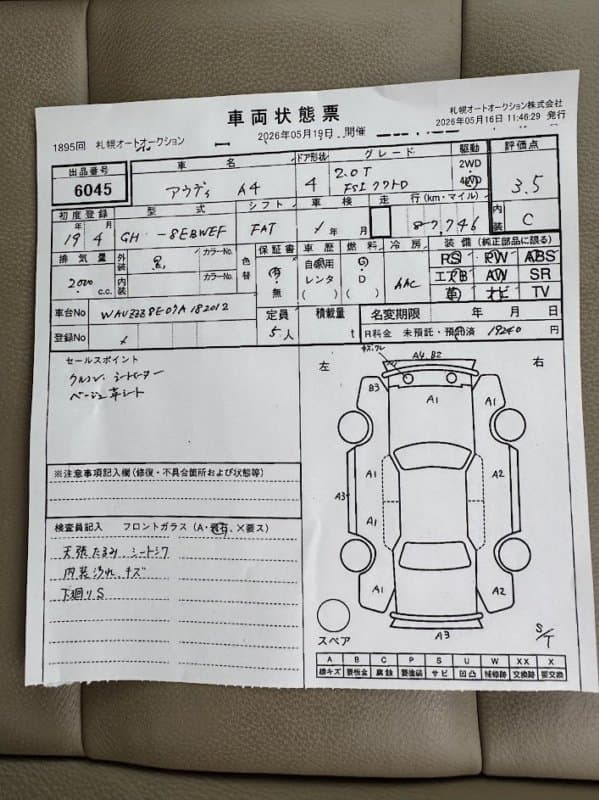 車両状態票
札幌オートオークション株式会社
1895回 札幌オートオークション
2026年05月19日 開催
2026年05月16日 11:46:29 発行
出品番号
6045
車名
アウディ A4
ドア形状
4
グレード
2.0T
FSI クワトロ
駆動
2WD
4WD
評価点
3.5
初度登録
19年 4月
型式
GH -8EBWEF
シフト
FAT
車検
走行(km・マイル)
87,746
内装
C
排気量
2000 c.c.
外装
黒
カラーNo.
内装
カラーNo.
色替
保証書
有・無
車歴
自家用
レンタ
( )
燃料
G
D
( )
冷房
AAC
装備 (純正部品に限る)
RS PW ABS
エアB AW SR
革 ナビ TV
車台No
WAUZZZ8E07A182012
定員
5人
積載量
t
名変期限 年 月 日
登録No
R料金 未預託・預託済 19240 円
セールスポイント
ウルコン. シートヒーター
ベージュ革シート
※注意事項記入欄(修復・不具合箇所および状態等)
検査員記入 フロントガラス (A・飛石、X要ス)
天張たるみ シートシワ
内装汚れ、キズ
下廻りS
左
右
キズ、ワレ
A4.B2
B3
A1
A1
A1
A2
A3
A1
A1
A2
A3
スペア
S/T
A B C P S U W XX X
線キズ 要板金 腐蝕 要塗装 サビ 凹凸 補修跡 交換跡 要交換